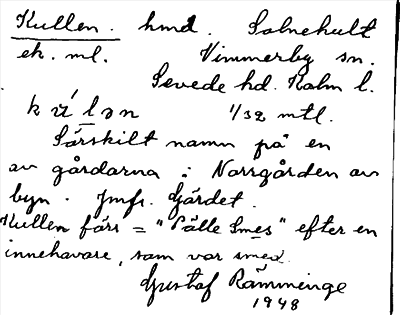 Kullen. hmd. Solnehult
ek. ml. Vimmerby sn.
Sevede hd. Kalm l.
kúlən 1/32 mtl.
Särskilt namn på en
av gårdarna i Norrgården av
byn. Jmfr. Gärdet.
Kullen förr = "Pälle Smes" efter en
innehavare, som var smed.
Gustaf Rämminge
1948